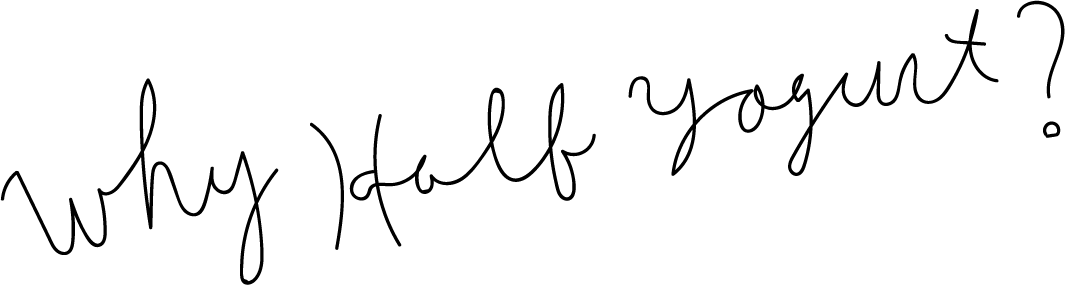 Why Half Yogurt?